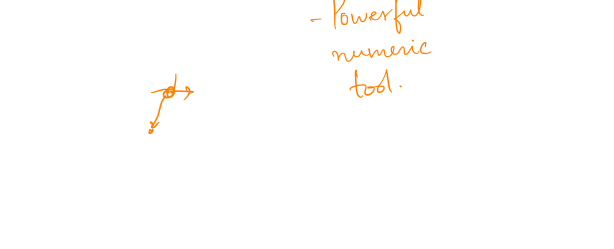 - Powerful
numeric
tool.